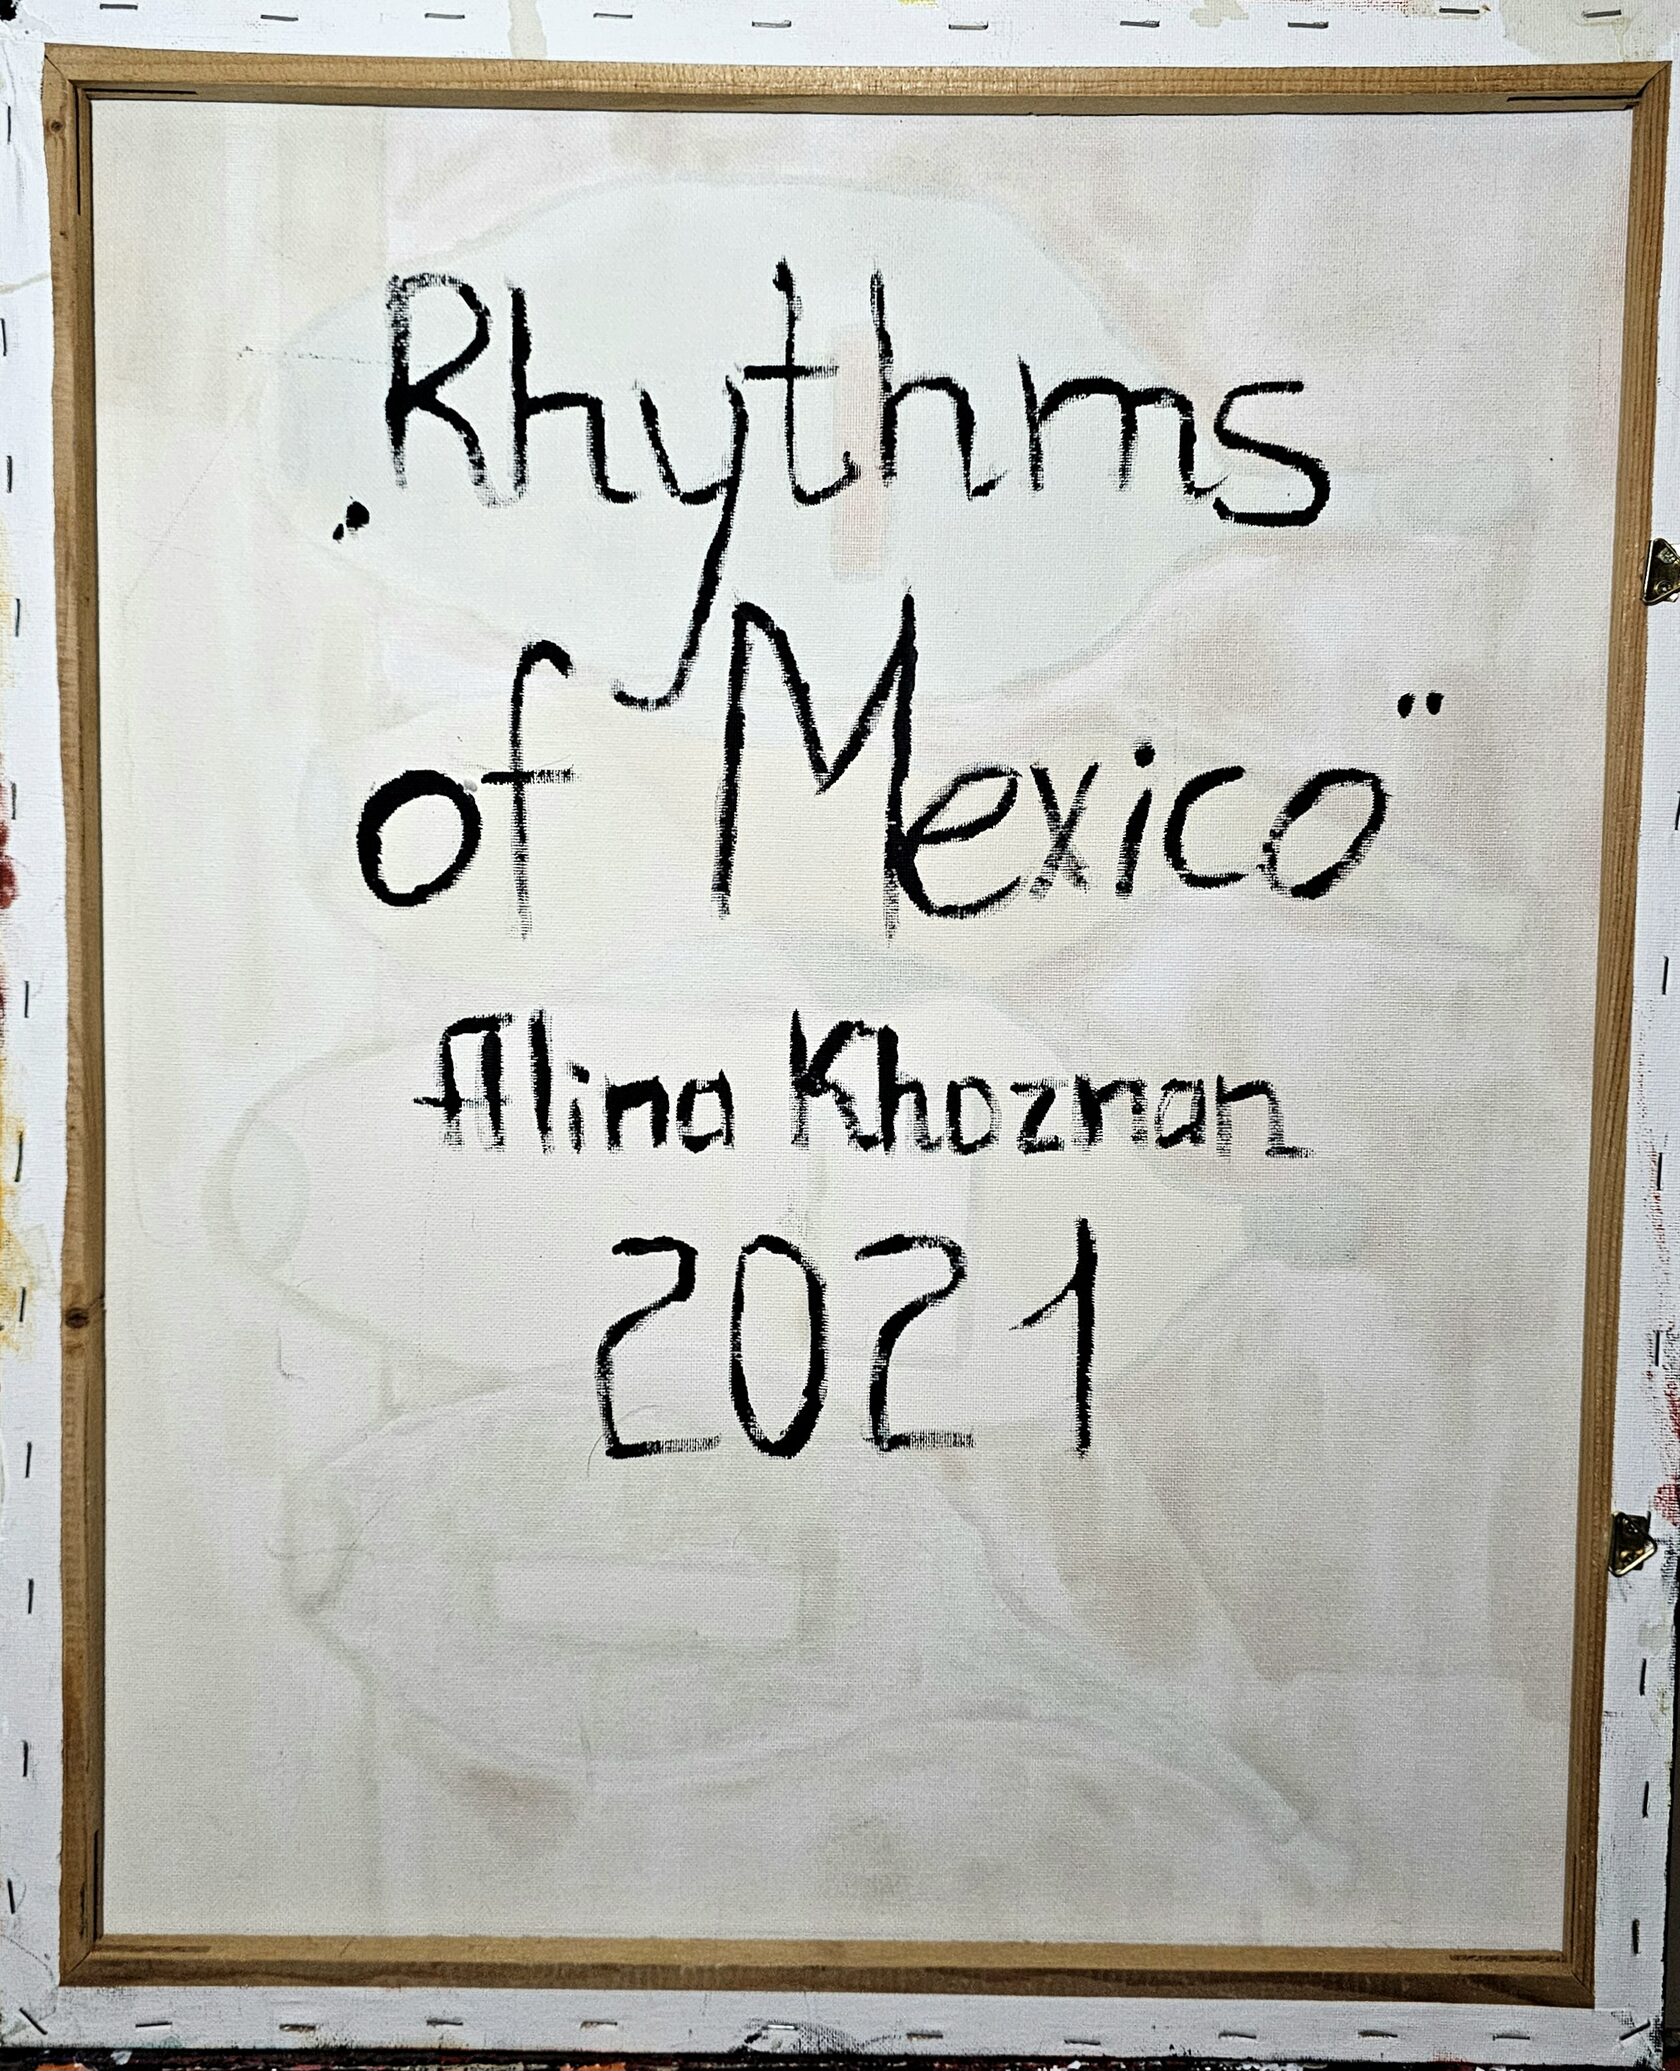 „Rhythms
of Mexico"
Alina Khoznan
2021